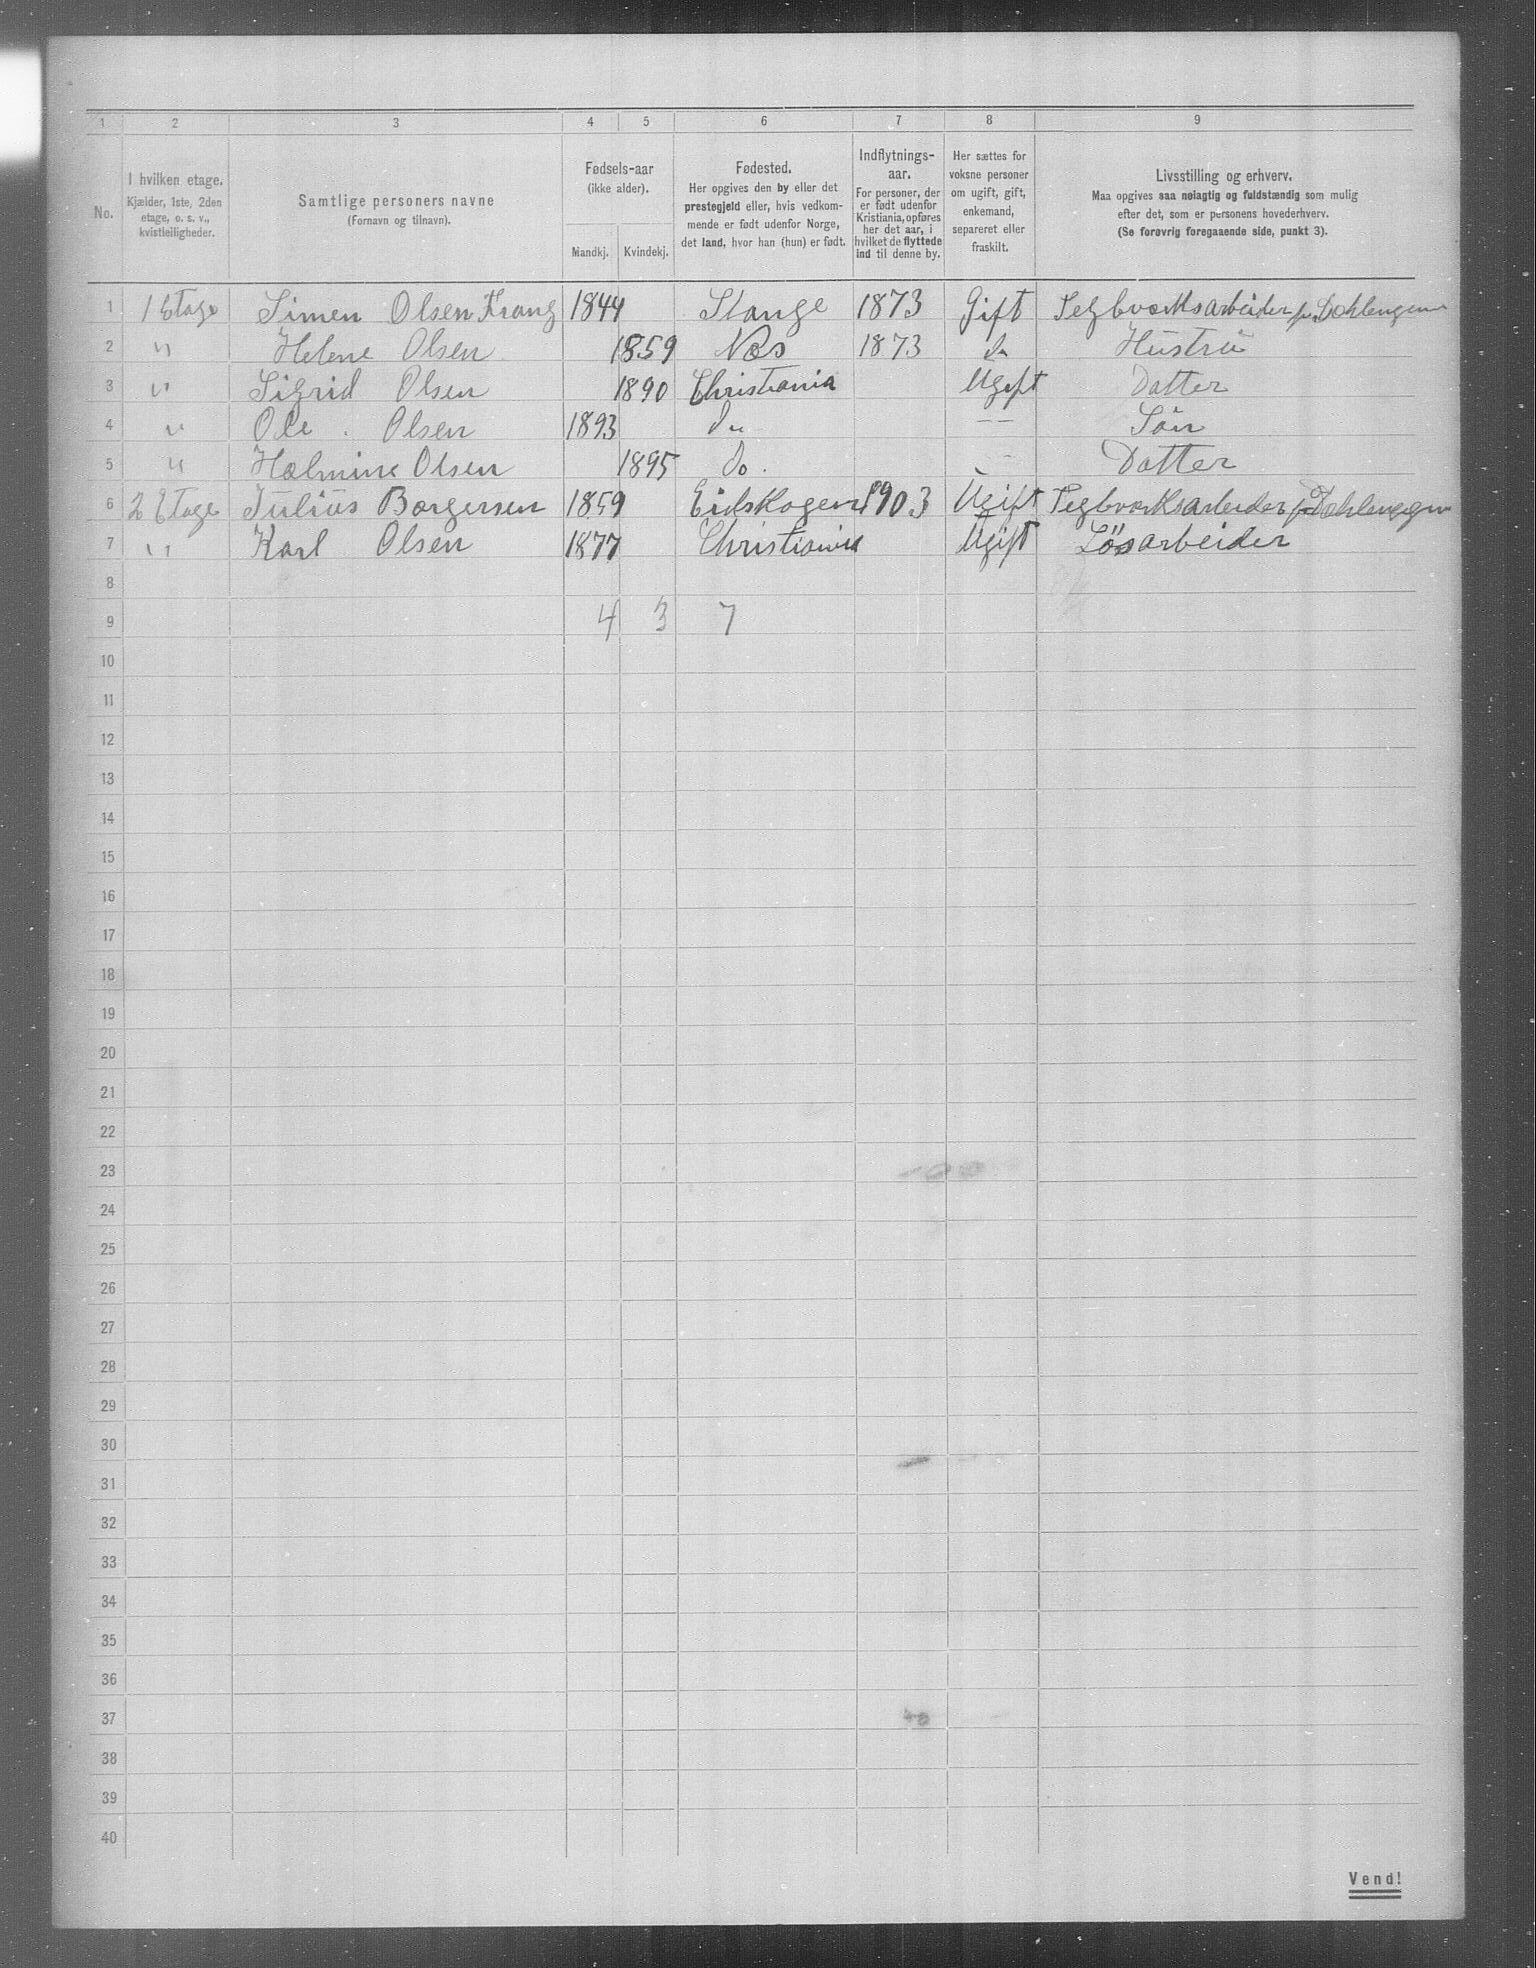 1 2 3 4 5 6 7 8 9
No.
I hvilken etage.
Kjælder, 1ste, 2den
etage, o. s. v.,
kvistleiligheder.
Samtlige personers navne
(Fornavn og tilnavn).
Fødsels-aar
(ikke alder).
Mandkj. Kvindekj.
Fødested.
Her opgives den by eller det
prestegjeld eller, hvis vedkom-
mende er født udenfor Norge,
det land, hvor han (hun) er født.
Indflytnings-
aar.
For personer, der
er født udenfor
Kristiania, opføres
her det aar, i
hvilket de flyttede
ind til denne by.
Her sættes for
voksne personer
om ugift, gift,
enkemand,
separeret eller
fraskilt.
Livsstilling og erhverv.
Maa opgives saa nøiagtig og fuldstændig som mulig
efter det, som er personens hovederhverv.
(Se forøvrig foregaaende side, punkt 3).
1 1 Etage Simen Olsen Krang 1844 Stange 1873 Gift Teglværksarbeider
2 " Helene Olsen 1859 Næs 1873 do Hustru
3 " Sigrid Olsen 1890 Christiania Ugift Datter
4 " Ole Olsen 1893 Do — Sön
5 " Halmine Olsen 1895 Do. — Datter
6 2 Etage Julius Borgersen 1859 Eidskogen 1903 Ugift Teglværksarbeider
7 " Karl Olsen 1877 Christiania Ugift Lösarbeider
8
9 4 3 7
10
11
12
13
14
15
16
17
18
19
20
21
22
23
24
25
26
27
28
29
30
31
32
33
34
35
36
37
38
39
40
Vend!